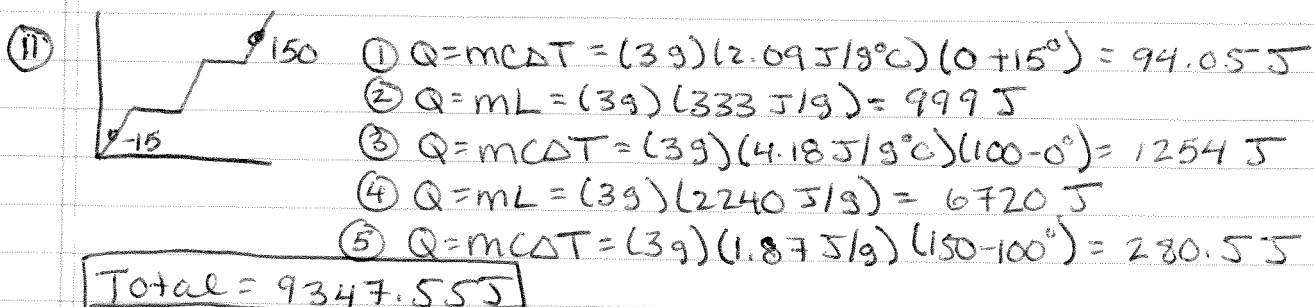 11
150
-15
① Q=mCΔT=(3g)(2.09J/g°C)(0+15°)=94.05J
② Q=mL=(3g)(333 J/g)=999 J
③ Q=mCΔT=(3g)(4.18J/g°C)(100-0°)=1254 J
④ Q=mL=(3g)(2240 J/g)= 6720 J
⑤ Q=mCΔT=(3g)(1.87J/g)(150-100°)=280.5J
Total=9347.55J